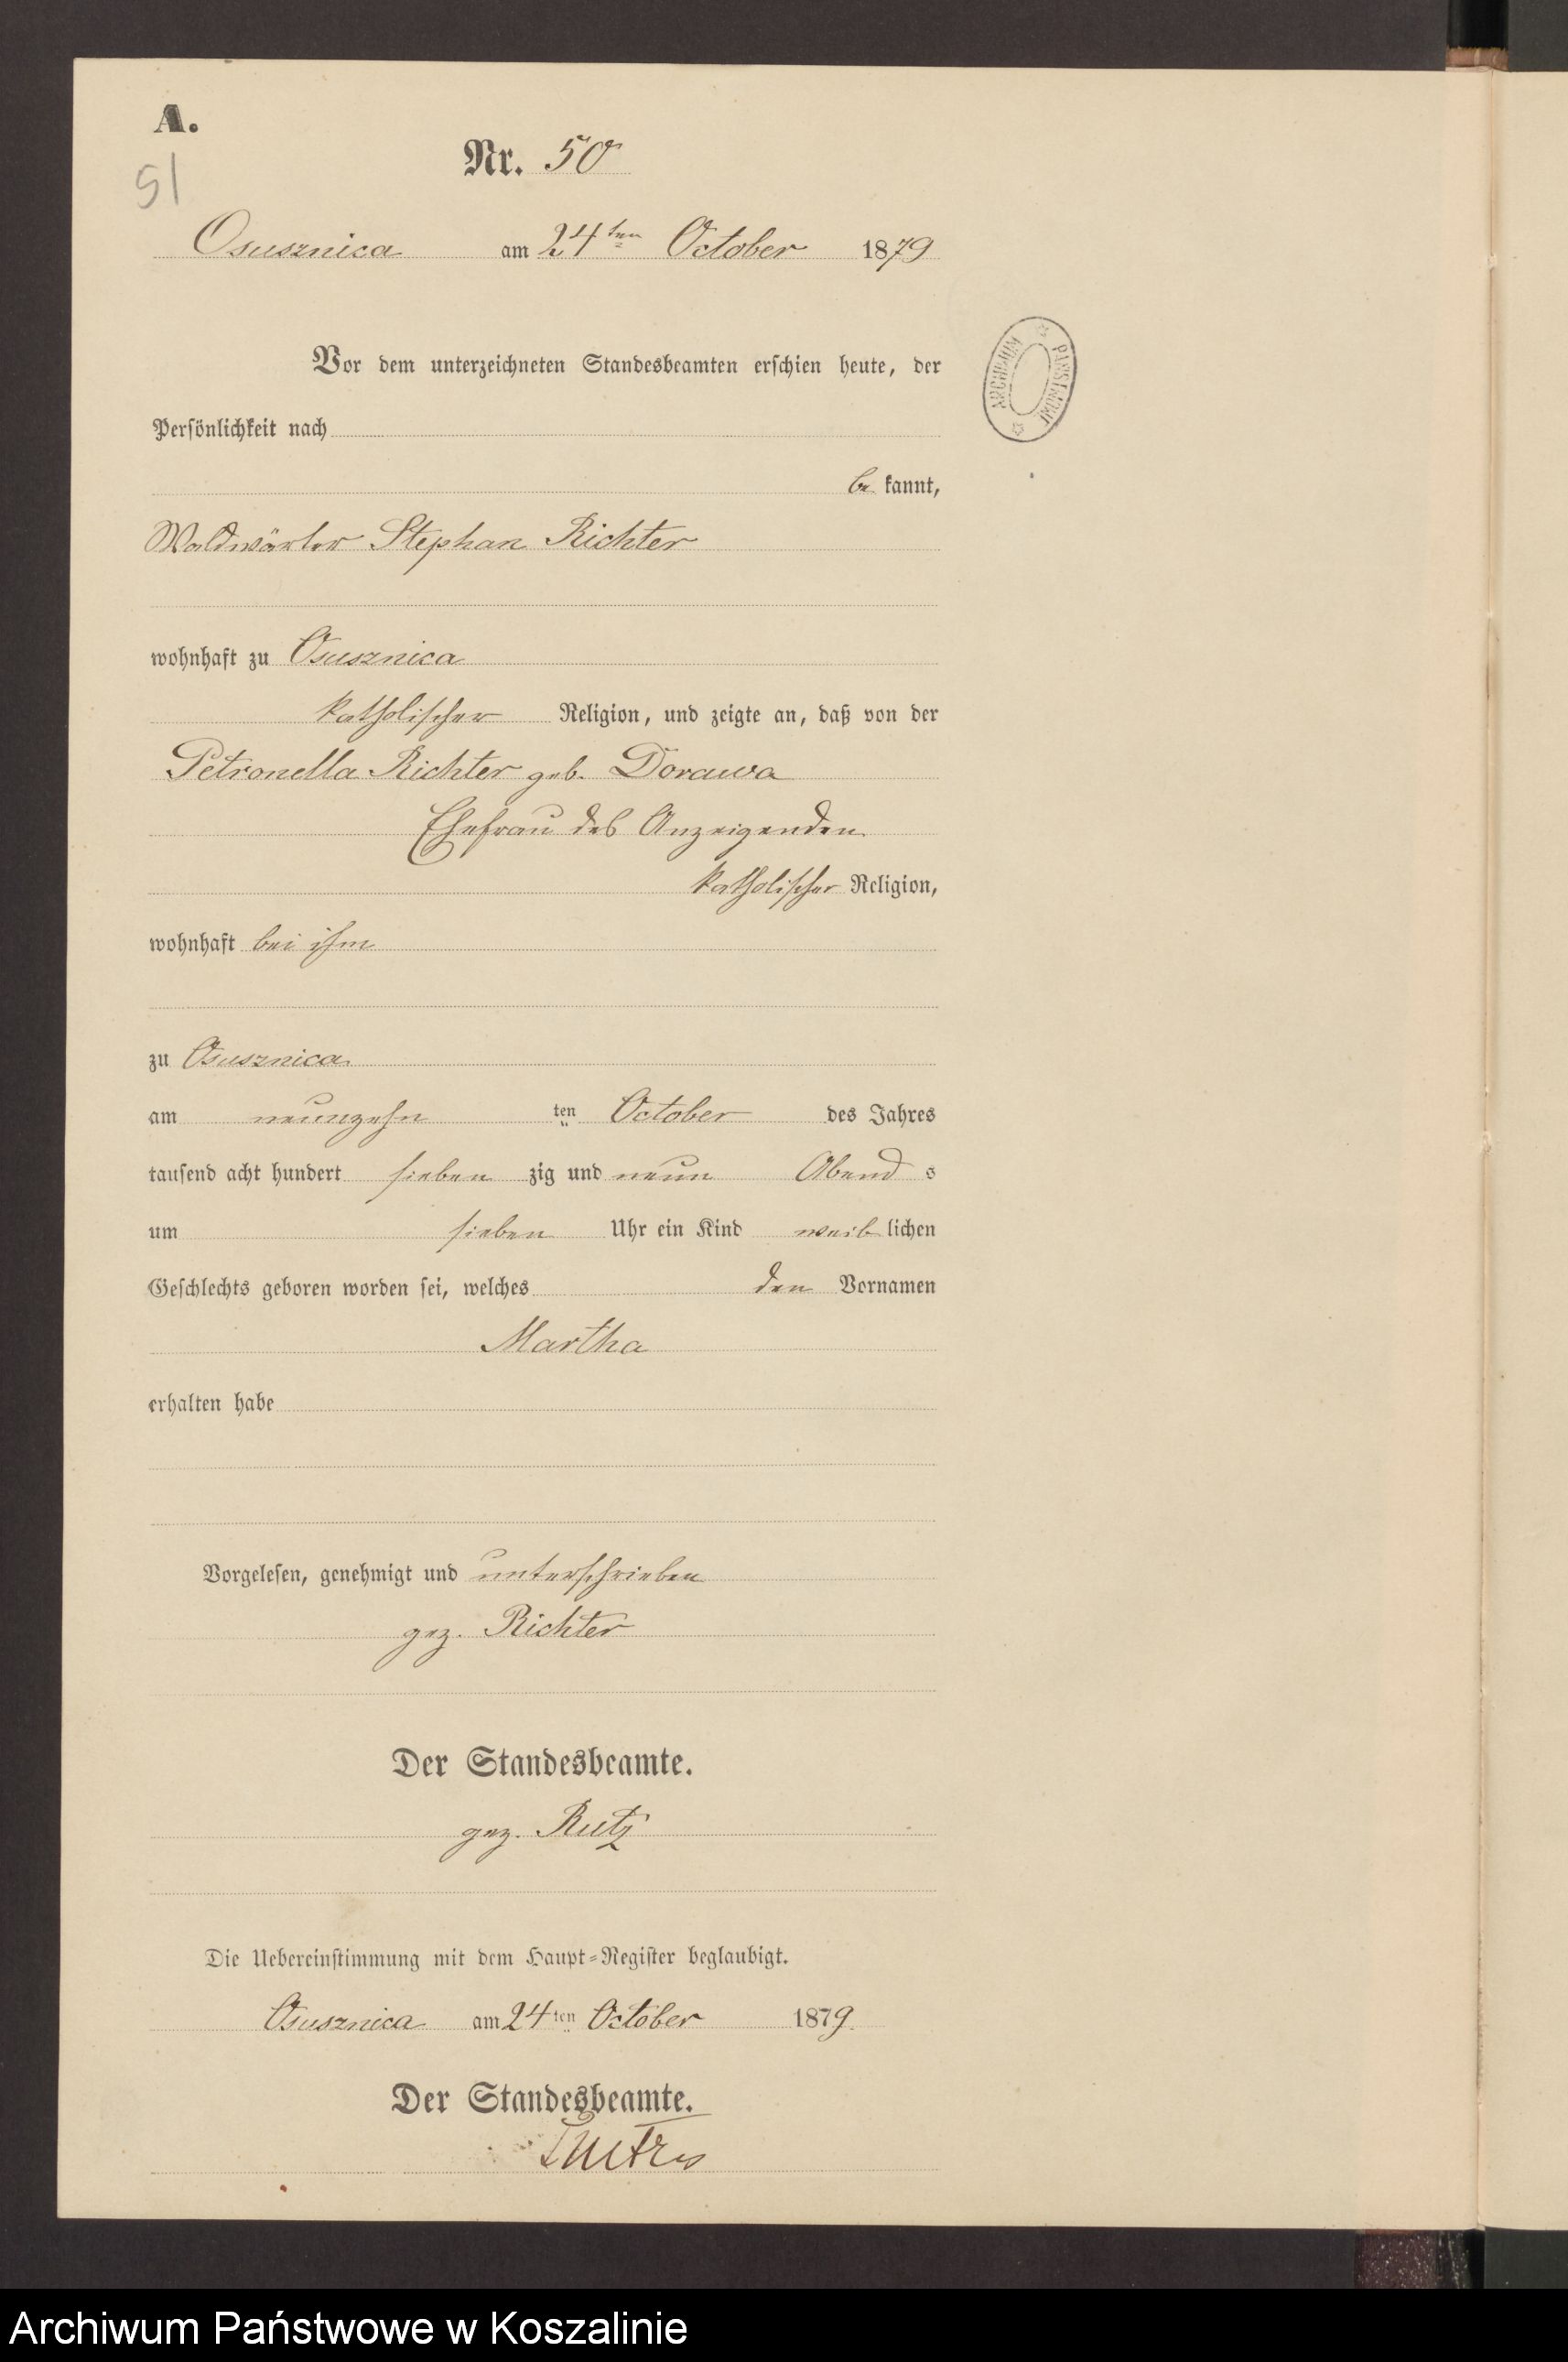 A.
51
Nr. 50
Osusznica am 24ten October 1879
ARCHIWUM PAŃSTWOWE
Vor dem unterzeichneten Standesbeamten erschien heute, der
Persönlichkeit nach
be kannt,
Waldwärter Stephan Richter
wohnhaft zu Osusznica
katholischer Religion, und zeigte an, daß von der
Petronella Richter geb. Dorawa
Ehefrau des Anzeigenden
katholischer Religion,
wohnhaft bei ihm
zu Osusznica
am neunzehn ten October des Jahres
tausend acht hundert sieben zig und neun Abend s
um sieben Uhr ein Kind weib lichen
Geschlechts geboren worden sei, welches den Vornamen
Martha
erhalten habe
Vorgelesen, genehmigt und unterschrieben
gez. Richter
Der Standesbeamte.
gez. Rutz
Die Uebereinstimmung mit dem Haupt=Register beglaubigt.
Osusznica am 24ten October 1879.
Der Standesbeamte.
Archiwum Państwowe w Koszalinie